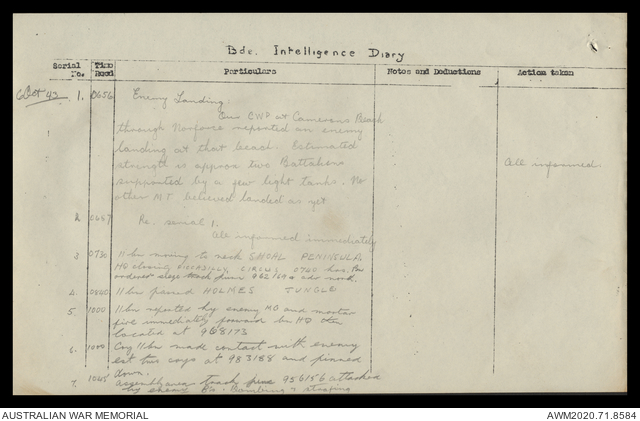 Bde. Intelligence Diary
Serial No. Time Recd Particulars Notes and Deductions Action taken
6 Oct 43 1. 0656 Enemy Landing.
Our CWP at Camerons Beach
through Norforce reported an enemy
landing at that beach. Estimated
strength is approx two Battalions
supported by a few light tanks. No All informed.
other MT believed landed as yet
2 0657 Re. serial 1.
All informed immediately
3 0730 11 bn moving to neck SHOAL PENINSULA.
HQ closing PICCADILLY CIRCUS 0740 hrs. Bn
ordered 962169
4. 0800 11 bn passed HOLMES JUNGLE
5. 1000 11 bn reported by enemy MG and mortar
fire immediately forward bn HQ
located at 968173
6. 1000 Coy 11 bn made contact with enemy
est two coys at 983188 and pinned
down.
7. 1045 Assembly area track 956156 attacked
by enemy Bombing & strafing
AUSTRALIAN WAR MEMORIAL AWM2020.71.8584